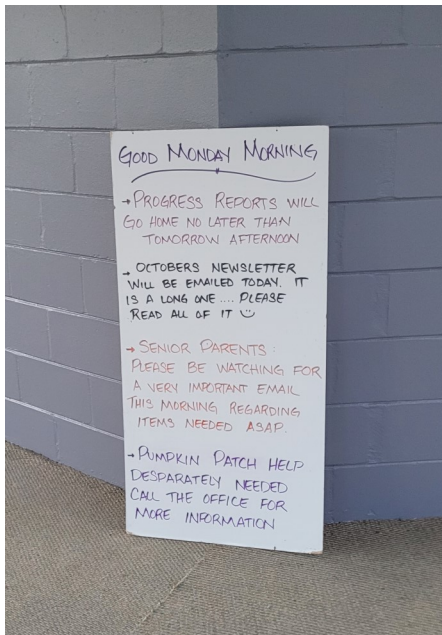 GOOD MONDAY MORNING
→ PROGRESS REPORTS WILL
GO HOME NO LATER THAN
TOMORROW AFTERNOON
→ OCTOBERS NEWSLETTER
WILL BE EMAILED TODAY. IT
IS A LONG ONE.... PLEASE
READ ALL OF IT ☺
→ SENIOR PARENTS:
PLEASE BE WATCHING FOR
A VERY IMPORTANT EMAIL
THIS MORNING REGARDING
ITEMS NEEDED ASAP.
→ PUMPKIN PATCH HELP
DESPARATELY NEEDED
CALL THE OFFICE FOR
MORE INFORMATION